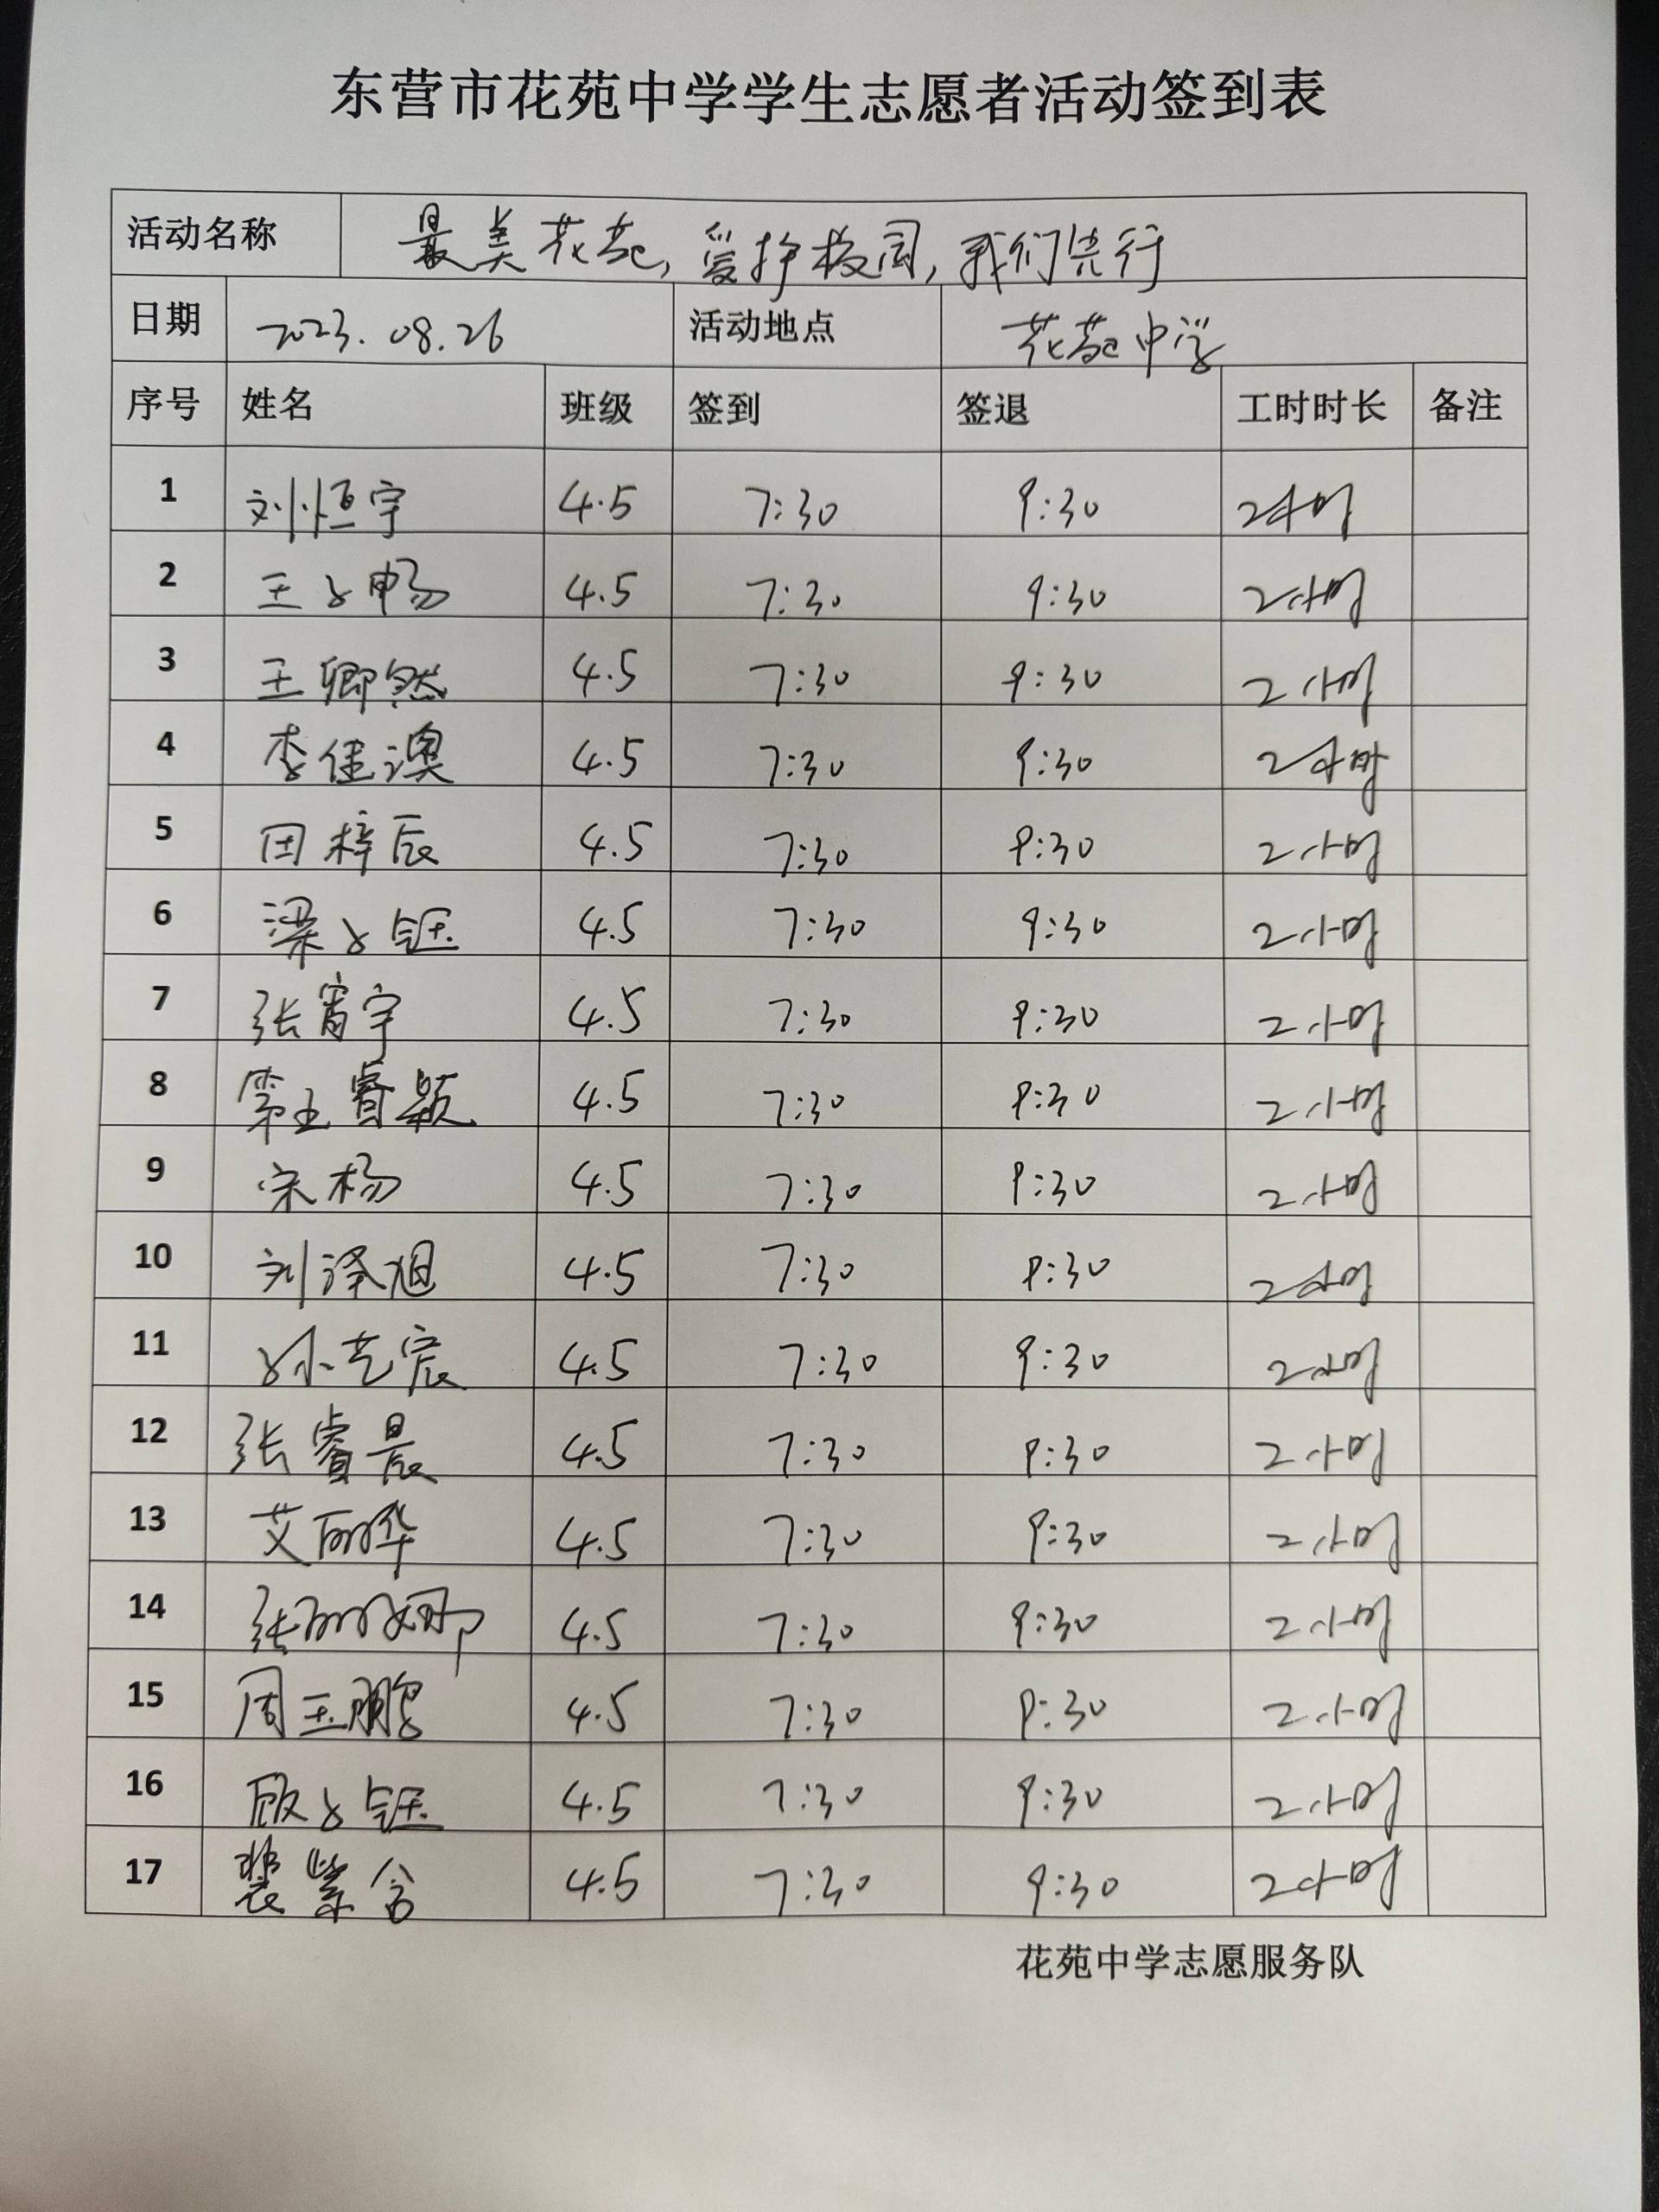 东营市花苑中学学生志愿者活动签到表
活动名称 最美花苑,爱护校园,我们先行
日期 2023.08.26 活动地点 花苑中学
序号 姓名 班级 签到 签退 工时时长 备注
1 刘恒宇 4.5 7:30 9:30 2小时
2 王子畅 4.5 7:30 9:30 2小时
3 王卿然 4.5 7:30 9:30 2小时
4 李佳澳 4.5 7:30 9:30 2小时
5 田梓辰 4.5 7:30 9:30 2小时
6 梁子钰 4.5 7:30 9:30 2小时
7 张宵宇 4.5 7:30 9:30 2小时
8 第五睿颖 4.5 7:30 9:30 2小时
9 宋杨 4.5 7:30 9:30 2小时
10 刘泽旭 4.5 7:30 9:30 2小时
11 孙艺宸 4.5 7:30 9:30 2小时
12 张睿晨 4.5 7:30 9:30 2小时
13 艾丽华 4.5 7:30 9:30 2小时
14 张丽娜 4.5 7:30 9:30 2小时
15 周玉鹏 4.5 7:30 9:30 2小时
16 顾子钰 4.5 7:30 9:30 2小时
17 裴紫含 4.5 7:30 9:30 2小时
花苑中学志愿服务队